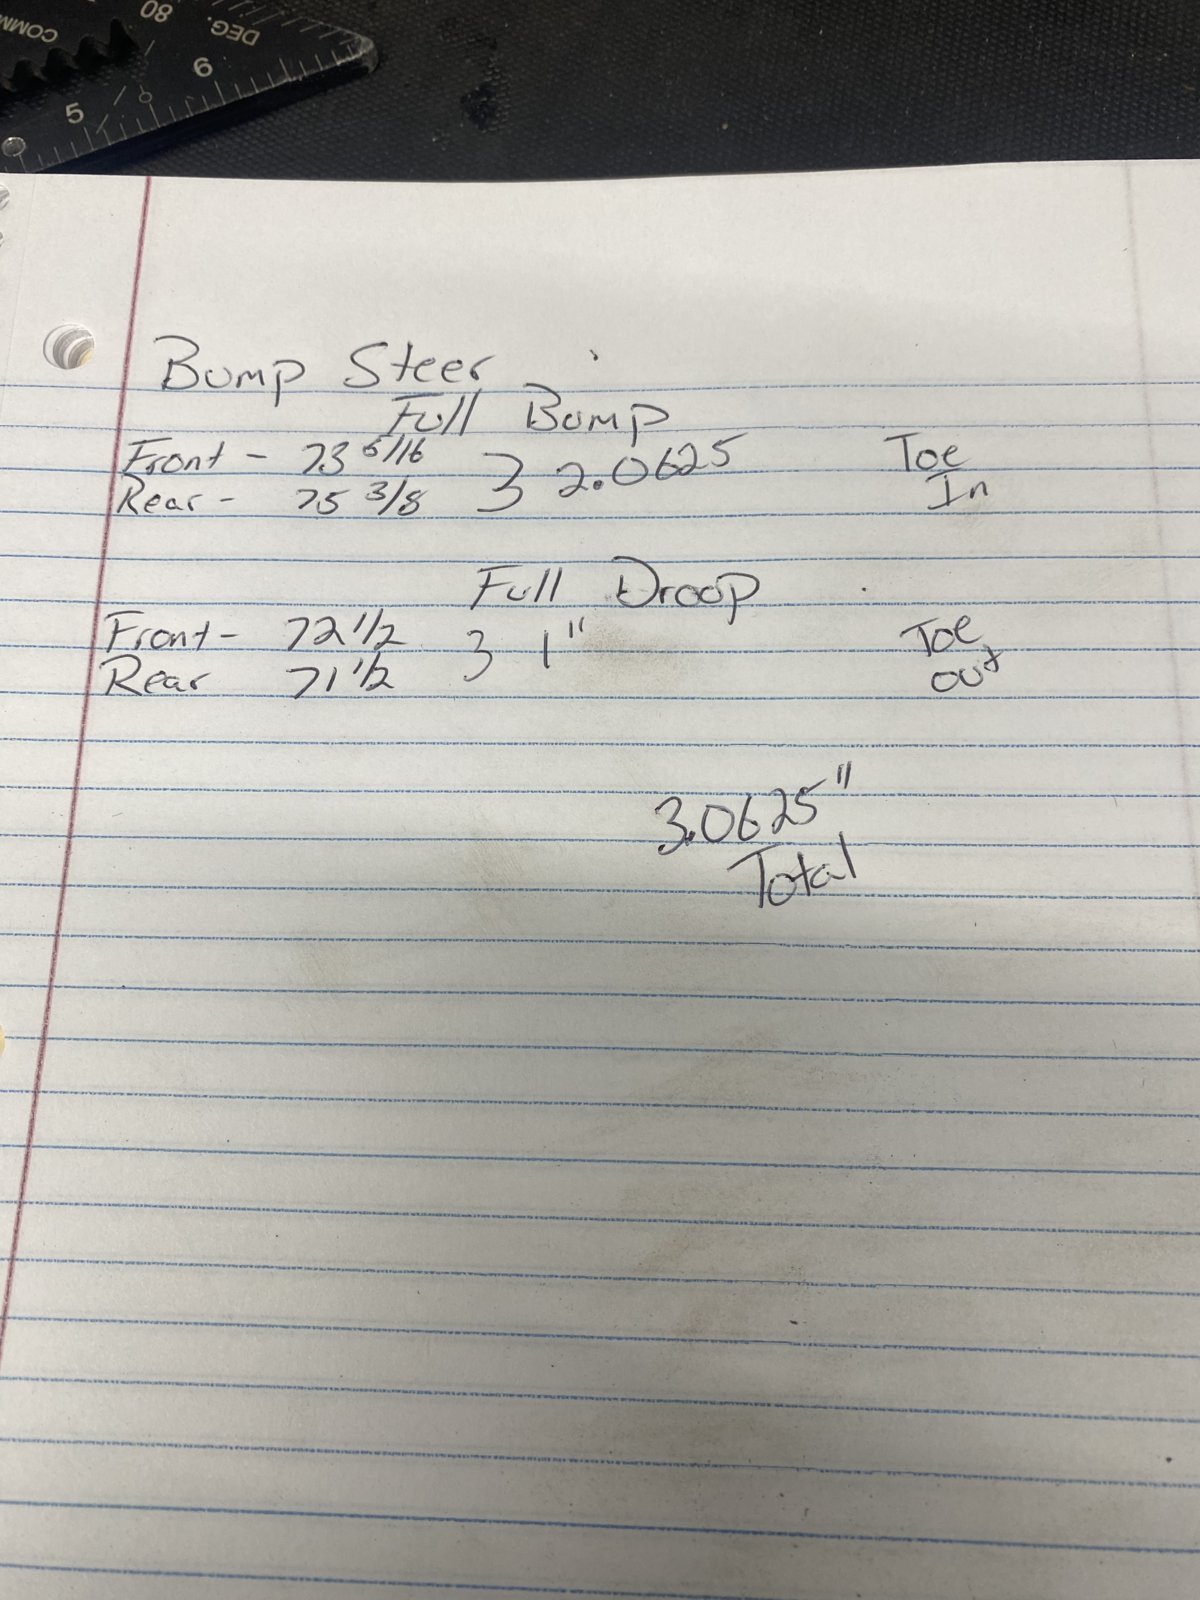 COMM
80
DEG.
5
6
Bump Steer
Full Bump
Front - 73 5/16
Rear - 75 3/8
} 2.0625
Toe
In
Full Droop
Front - 72 1/2
Rear 71 1/2
} 1"
Toe
out
3.0625"
Total